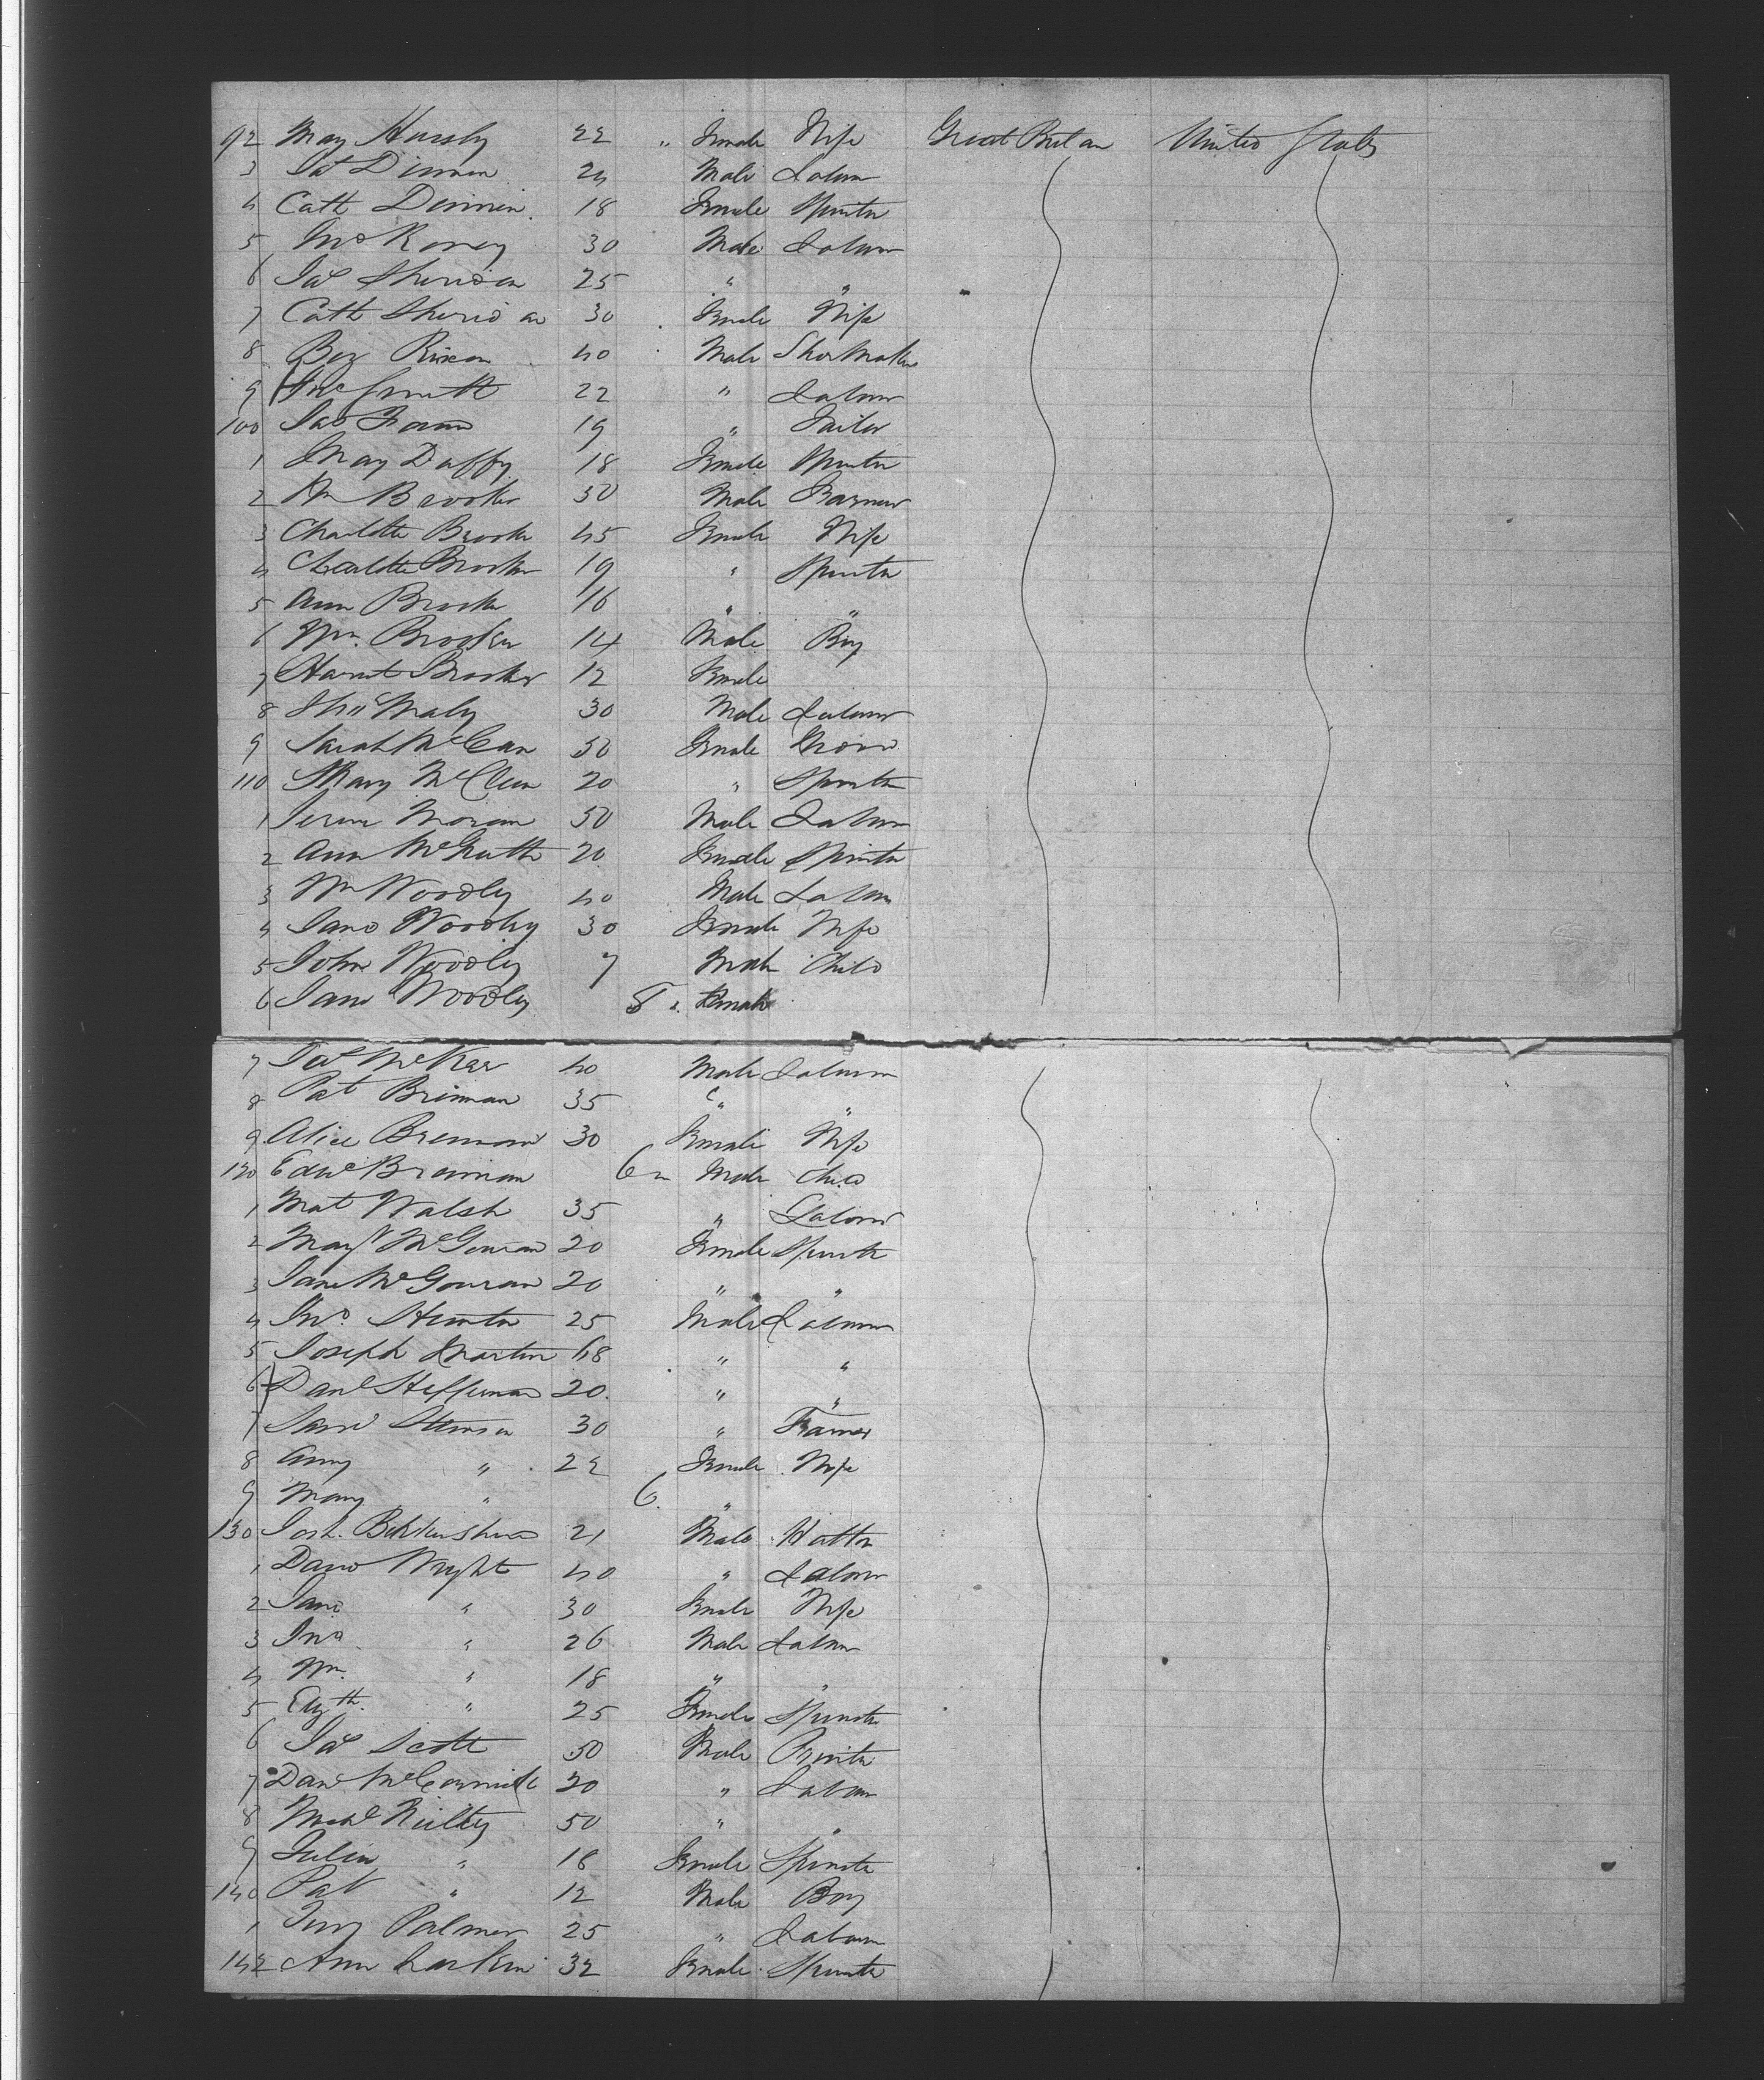 92 May Hursly 22 " Female Wife Great Britan United States
3 Pat Dinnin 24 Male Labour
4 Cath Dinnin 18 Female Spinstr
5 Jno Roney 30 Male Labour
6 Jas Sheridan 25 " "
7 Cath Sheridan 30 Female Wife
8 40 Male Shoe Maker
9 Jno Smith 22 " Labour
100 Jas 19 " Tailor
1 Mary Duffy 18 Female Spinstr
2 Wm Brooker 50 Male Farmer
3 Charlotte Brooker 45 Female Wife
4 Charlotte Brooker 19 " Spinstr
5 Ann Brooker 16 " "
6 Wm. Brooker 14 Male Boy
7 Harriet Brooker 12 Female
8 Maly 30 Male Labour
9 Sarah McCean 50 Female
110 Mary McClean 20 " Spinstr
1 Moran 50 Male Labour
2 Ann McGrath 20 Female Spinstr
3 Wm Woodly 40 Male Labour
4 Jane Woodly 30 Female Wife
5 John Woodly 7 Male Child
6 Jane Woodly 8 Female
7 Jas McKee 40 Male Labour
8 Pat Brinnan 35 " "
9 Alice Brennan 30 Female Wife
120 Edwd Brennan 6 m Male Child
1 Mat Walsh 35 " Labour
2 Mary McGouran 20 Female Spinstr
3 Jane McGouran 20 " "
4 Jno. 25 Male Labour
5 Joseph Martin 48 " "
6 Danl Heffernan 20. " "
7 Saml 30 " Farmer
8 Amy " 22 Female Wife
9 Mary " 6. "
130 Josh. 21 Male Hatter
1 David Wright 40 " Labour
2 Jane " 30 Female Wife
3 Jno. " 26 Male Labour
4 Wm. " 18 " "
5 Elizth. " 25 Female Spinstr
6 Jas Scott 50 Male Printer
7 Danl McCormick 20 " Labour
8 Michl Rielly 50 " "
9 Julia " 18 Female Spinstr
140 Pat " 12 Male Boy
1 Palmer 25 " Labour
142 Ann Larkin 32 Female Spinstr